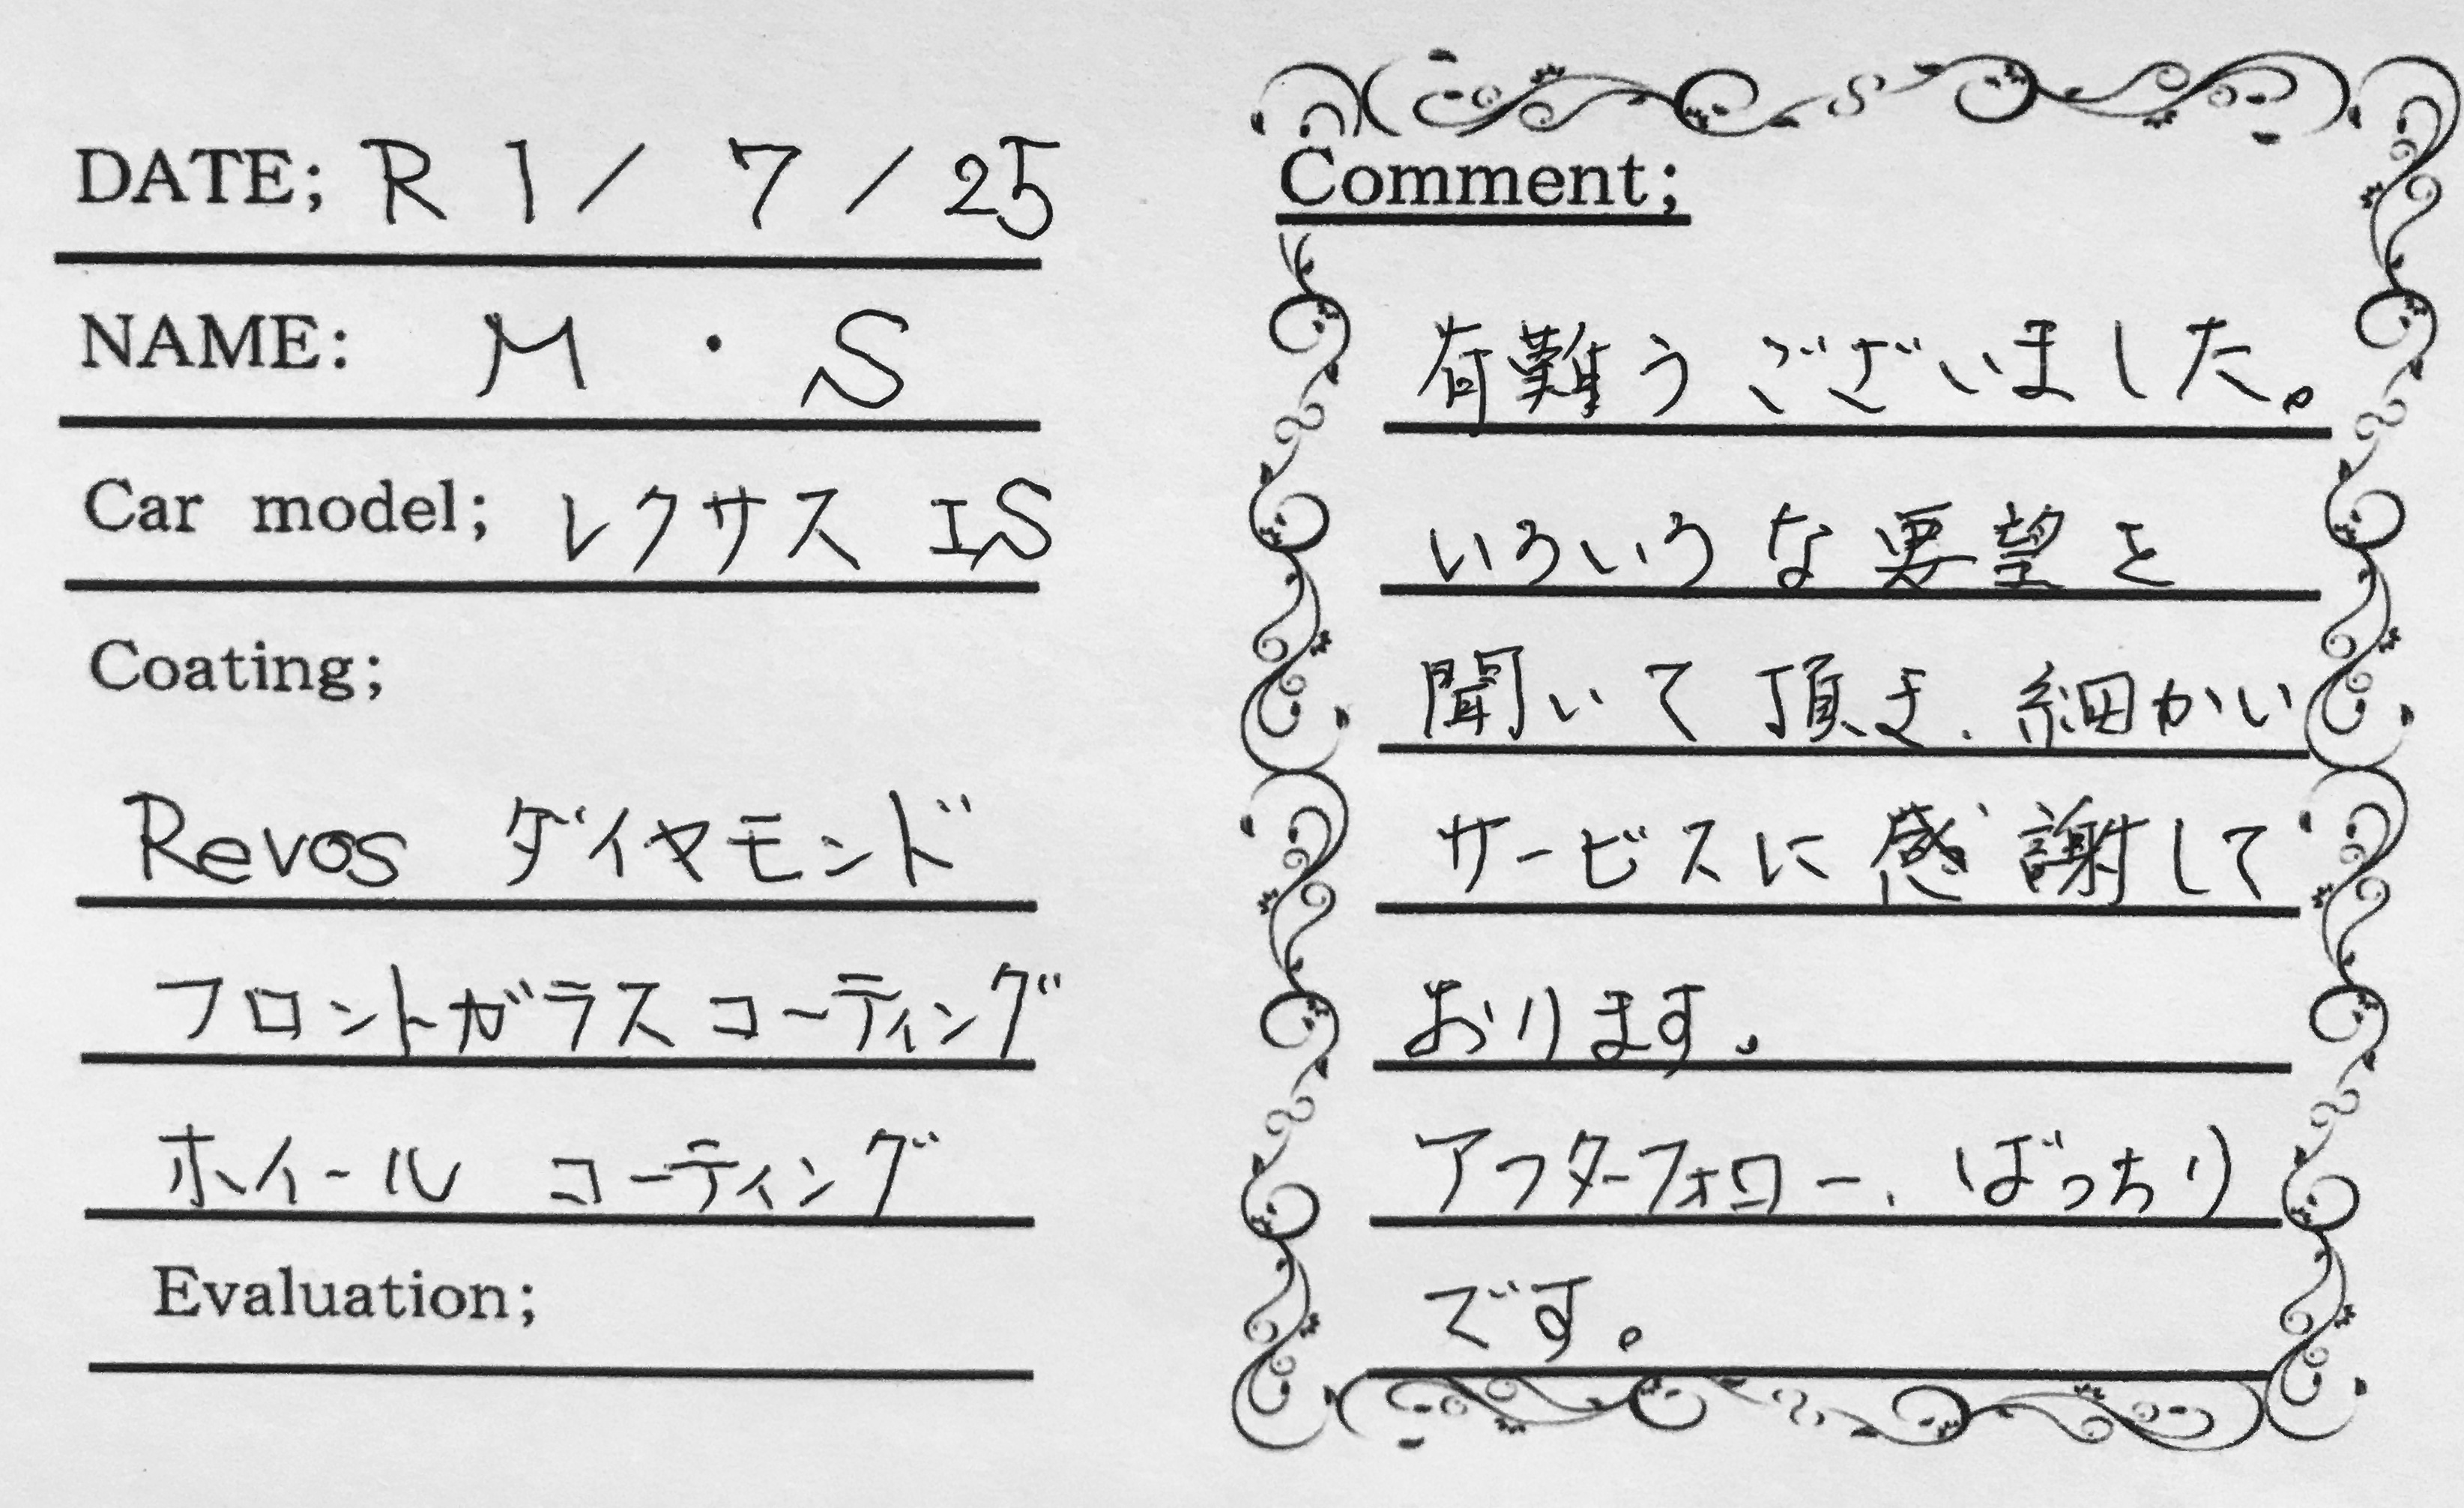 DATE; R 1 / 7 / 25
NAME: M ・ S
Car model; レクサス IS
Coating;
Revos ダイヤモンド
フロントガラスコーティング
ホイール コーティング
Evaluation;
Comment;
有難うございました。
いろいろな要望を
聞いて頂き、細かい
サービスに感謝して
おります。
アフターフォロー、ばっちり
です。